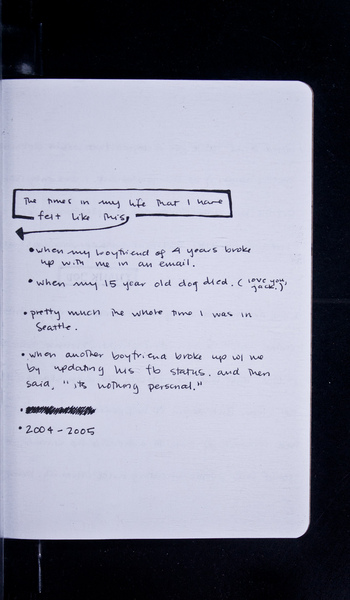 The times in my life that I have
felt like this,
• when my boyfriend of 4 years broke
up with me in an email.
• when my 15 year old dog died. (love you,
Jack.)
• pretty much the whole time I was in
Seattle.
• when another boyfriend broke up w/ me
by updating his fb status. and then
said, "its nothing personal."
•
• 2004-2005